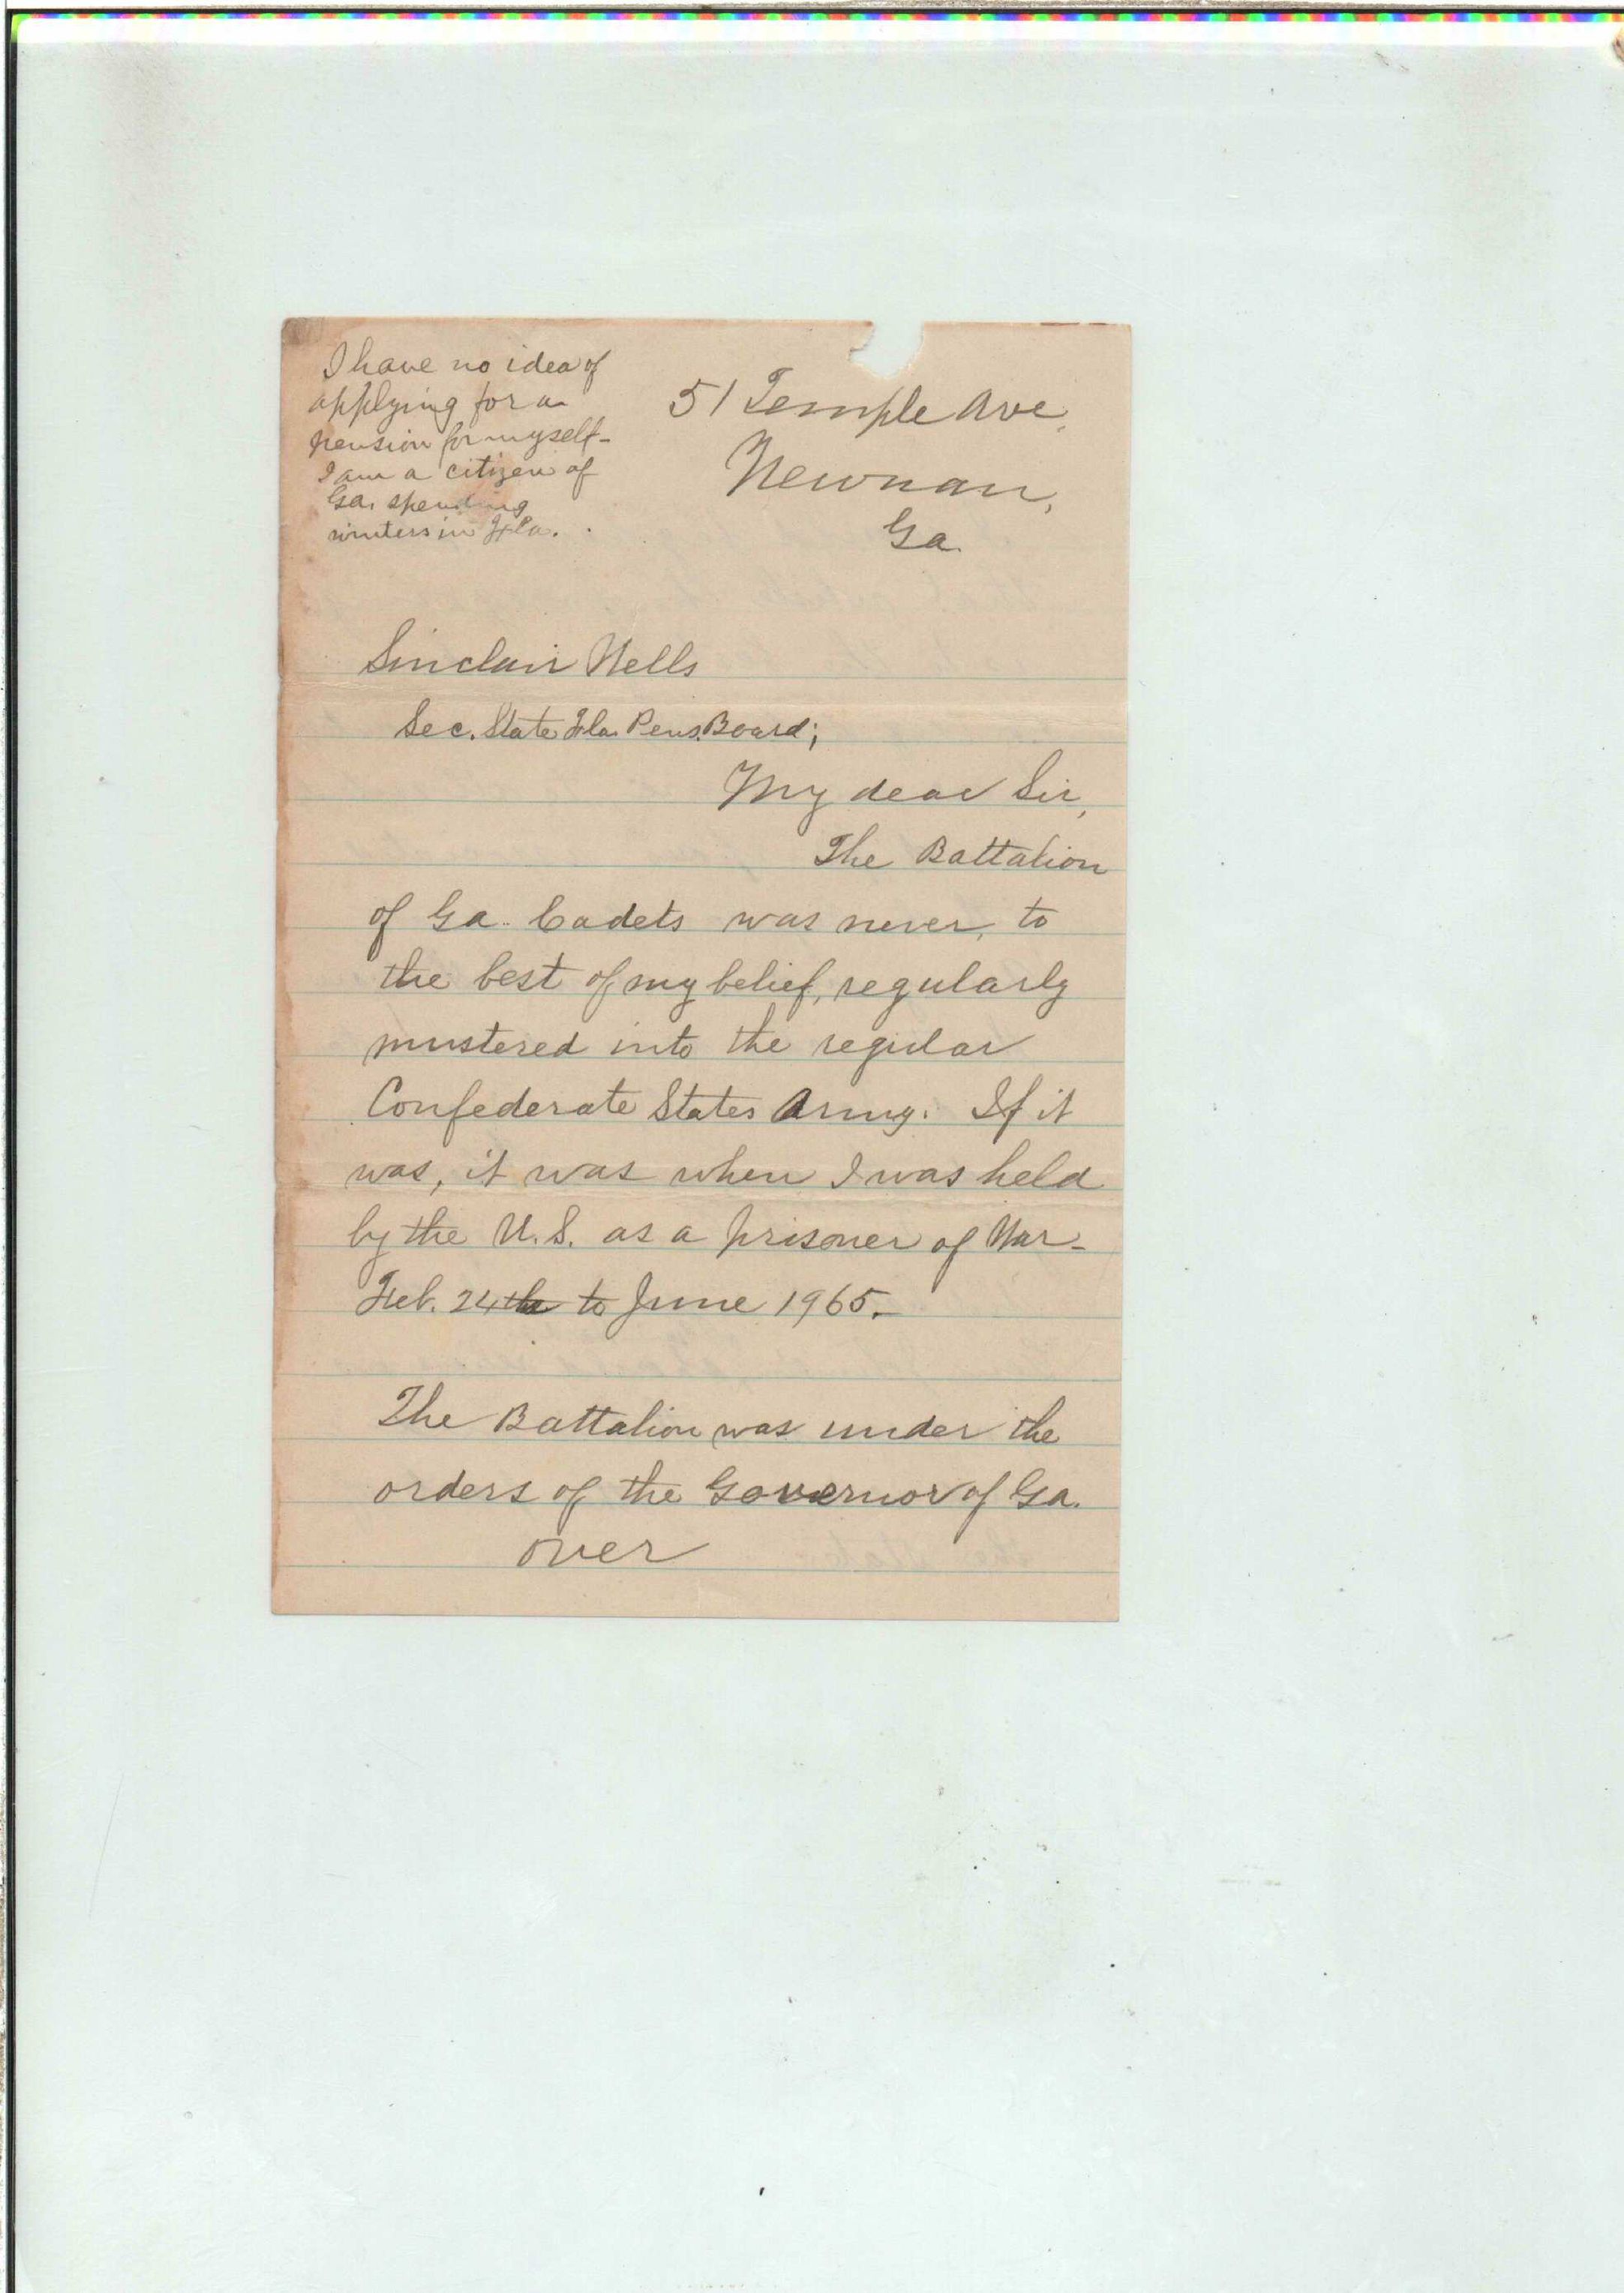 I have no idea of
applying for a
pension for myself-
I am a citizen of
Ga. spending
winters in Fla.
51 Temple Ave,
Newnan,
Ga.
Sinclair Wells
Sec. State Fla. Pens. Board;
My dear Sir,
The Battalion
of Ga. Cadets was never, to
the best of my belief, regularly
mustered into the regular
Confederate States Army. If it
was, it was when I was held
by the U.S. as a prisoner of War-
Feb. 24th to June 1965.
The Battalion was under the
orders of the Governor of Ga.
over